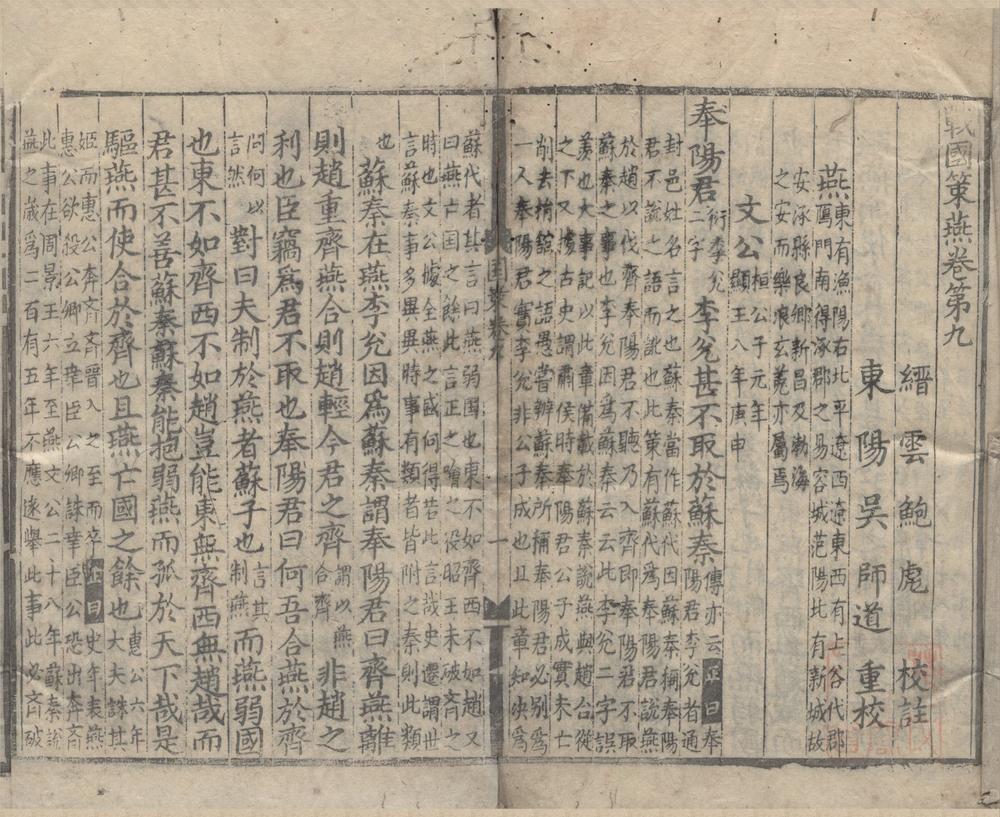 戰國策燕卷第九
縉雲 鮑彪 校註
東陽 吳師道 重校
燕東有漁陽右北平遼西遼東西有上谷代郡
鴈門南得涿郡之易容城范陽北有新城故
安涿縣良鄉新昌及渤海
之安而樂浪玄菟亦屬焉
文公桓公子元年
顯王八年庚申
奉陽君衍李兊
二字李兊甚不取於蘇秦傳亦云
陽君李兊者通正曰奉
封邑姓名言之也蘇秦當作蘇代因蘇秦稱奉陽
君不說之語而訛也此策有蘇代爲奉陽君說燕
於趙以伐齊奉陽君不聽乃入齊即奉陽君不取
蘇秦之事也李兊因爲蘇秦云云此李兊二字誤
羨也大事記以此章備載於蘇秦說燕與趙合從
之下據古史謂肅侯時奉陽君公子成實未亡
削去捐舘之語愚嘗辦蘇秦所稱奉陽君必别爲
一人奉陽君實李兊非公子成也且此章知決爲
蘇代者其言曰燕弱國也東不如齊西不如趙又
曰燕亡国之餘此言正之噲之役昭王未破齊之
時也文公據全燕之盛何得若此言哉史遷謂世
言蘇秦事多異異時事有類者皆附之蘇秦則此類
也
蘇秦在燕李兊因爲蘇秦謂奉陽君曰齊燕離
則趙重齊燕合則趙輕今君之齊謂以燕
合齊非趙之
利也臣竊爲君不取也奉陽君曰何吾合燕於齊
問何以
言然對曰夫制於燕者蘇子也言其
制燕而燕弱國
也東不如齊西不如趙豈能東無齊西無趙哉而
君甚不善蘇秦蘇秦能抱弱燕而孤於天下哉是
驅燕而使合於齊也且燕亡國之餘也惠公六年
大夫誅其
姬而惠公奔齊齊晋入之至而卒正曰史年表燕
惠公欲殺公卿立幸臣公卿誅幸臣公恐出奔齊
此事在周景王六年至燕文公二十八年蘇秦說
燕之歲爲二百有五年不應遂舉此事此必齊破
國策卷九
一